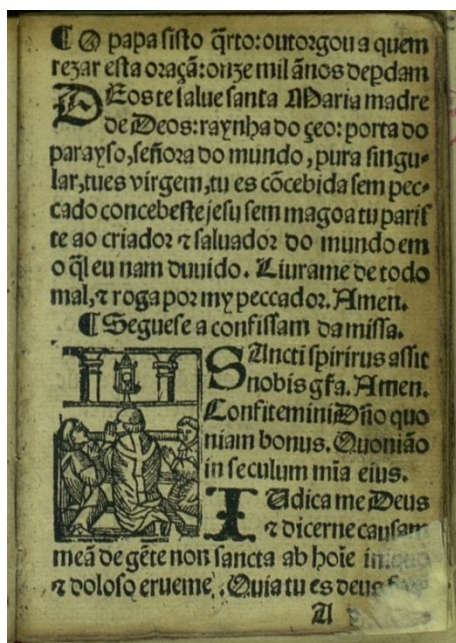 ¶ O papa sisto q̃rto: outorgou a quem
rezar esta oraçã: onze mil ãnos de pdam
DEos te salue santa Maria madre
de Deos: raynha do çeo: porta do
parayso, señora do mundo, pura singu-
lar, tu es virgem, tu es cõcebida sem pec-
cado concebeste jesu sem magoa tu paris
te ao criador ⁊ saluador do mundo em
o q̃l eu nam duuido. Liurame de todo
mal, ⁊ roga por my peccador. Amen.
¶ Seguese a confissam da missa.
SAncti spirirus assit
nobis gr̃a. Amen.
Confitemini Dño quo
niam bonus. Quonião
in seculum mĩa eius.
IUdica me Deus
⁊ dicerne causam
meã de gẽte non sancta ab hoĩe
⁊ doloso erueme. Quia tu es deus
A